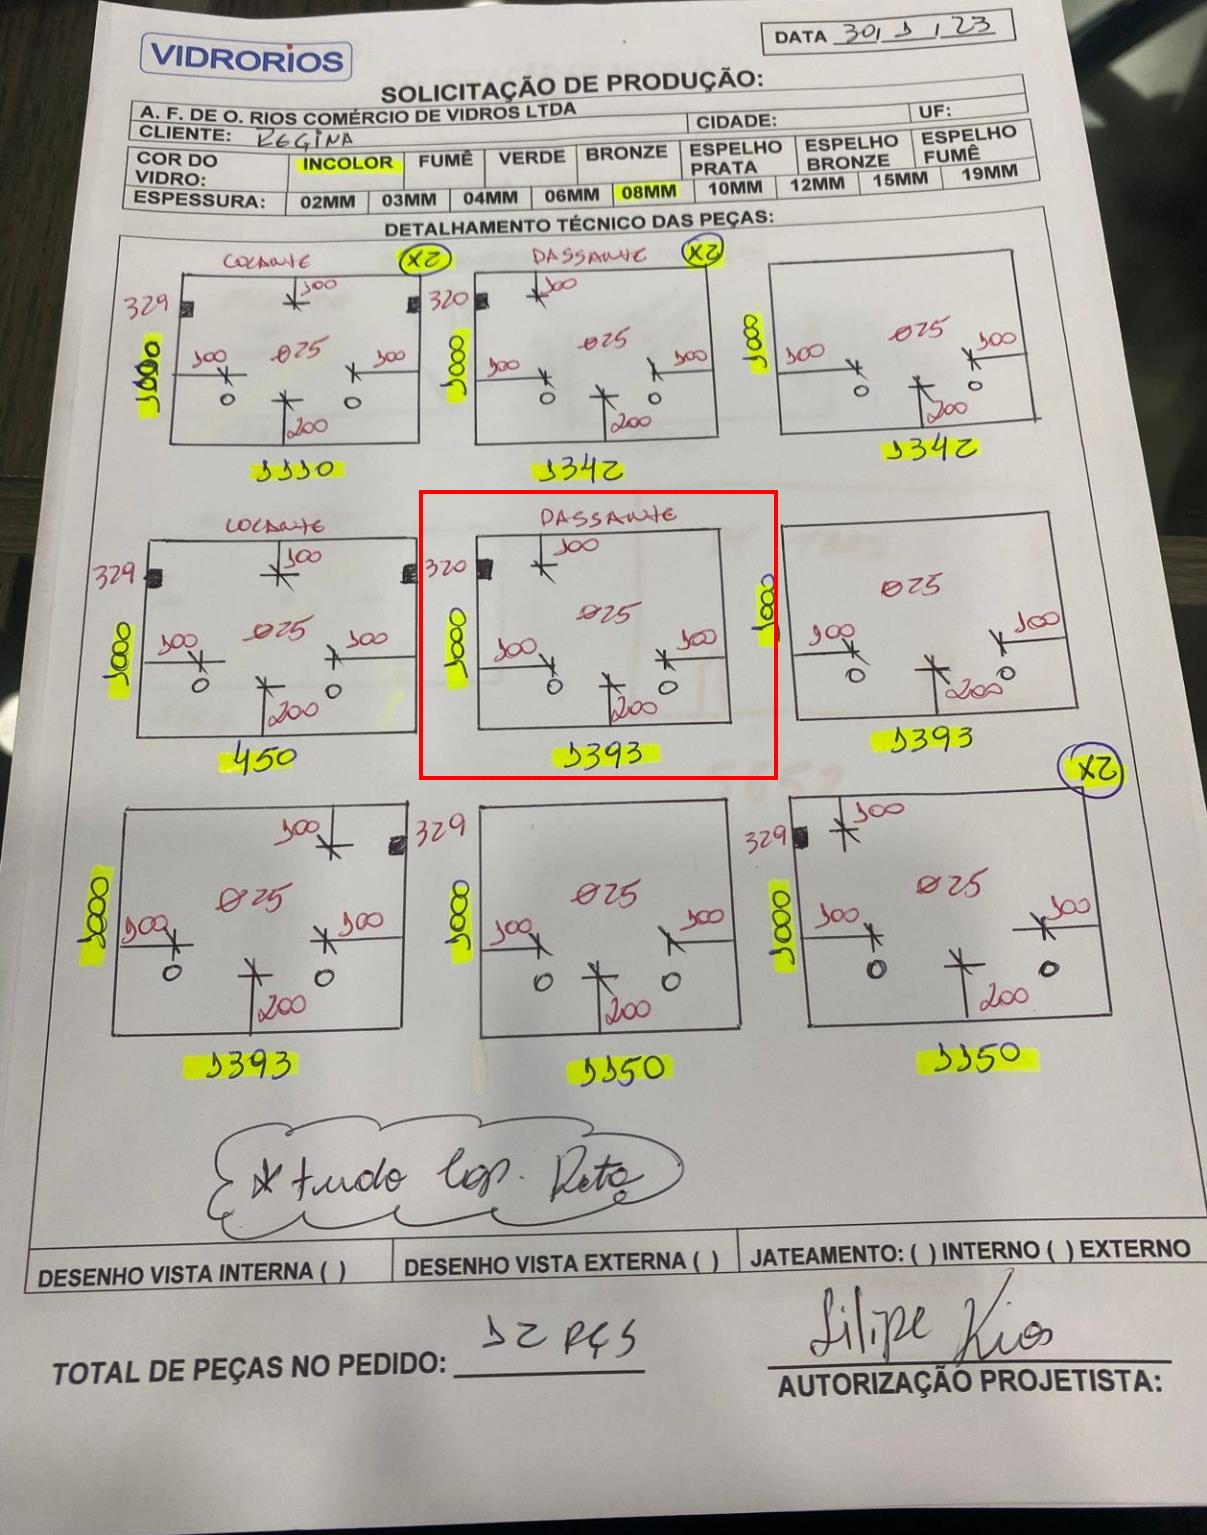 VIDRORIOS
DATA 30, 1, 23
SOLICITAÇÃO DE PRODUÇÃO:
A. F. DE O. RIOS COMÉRCIO DE VIDROS LTDA
CLIENTE: REGINA CIDADE: UF:
COR DO VIDRO: INCOLOR FUMÊ VERDE BRONZE ESPELHO PRATA ESPELHO BRONZE ESPELHO FUMÊ
ESPESSURA: 02MM 03MM 04MM 06MM 08MM 10MM 12MM 15MM 19MM
DETALHAMENTO TÉCNICO DAS PEÇAS:
LOCANTE X2 PASSANTE X2
329 100 320 100
1000 100 Ø25 100 1000 100 Ø25 100 1000 100 Ø25 100
200 200 200
1110 1342 1342
LOCANTE PASSANTE
329 100 320 100
1000 100 Ø25 100 1000 100 Ø25 100 1000 100 Ø25 100
200 200 200
450 1393 1393
X2
100 329 329 100
1000 100 Ø25 100 1000 100 Ø25 100 1000 100 Ø25 100
200 200 200
1393 1150 1150
* tudo lap. Reta
DESENHO VISTA INTERNA ( ) DESENHO VISTA EXTERNA ( ) JATEAMENTO: ( ) INTERNO ( ) EXTERNO
TOTAL DE PEÇAS NO PEDIDO: 12 PÇS
Filipe Rios
AUTORIZAÇÃO PROJETISTA: